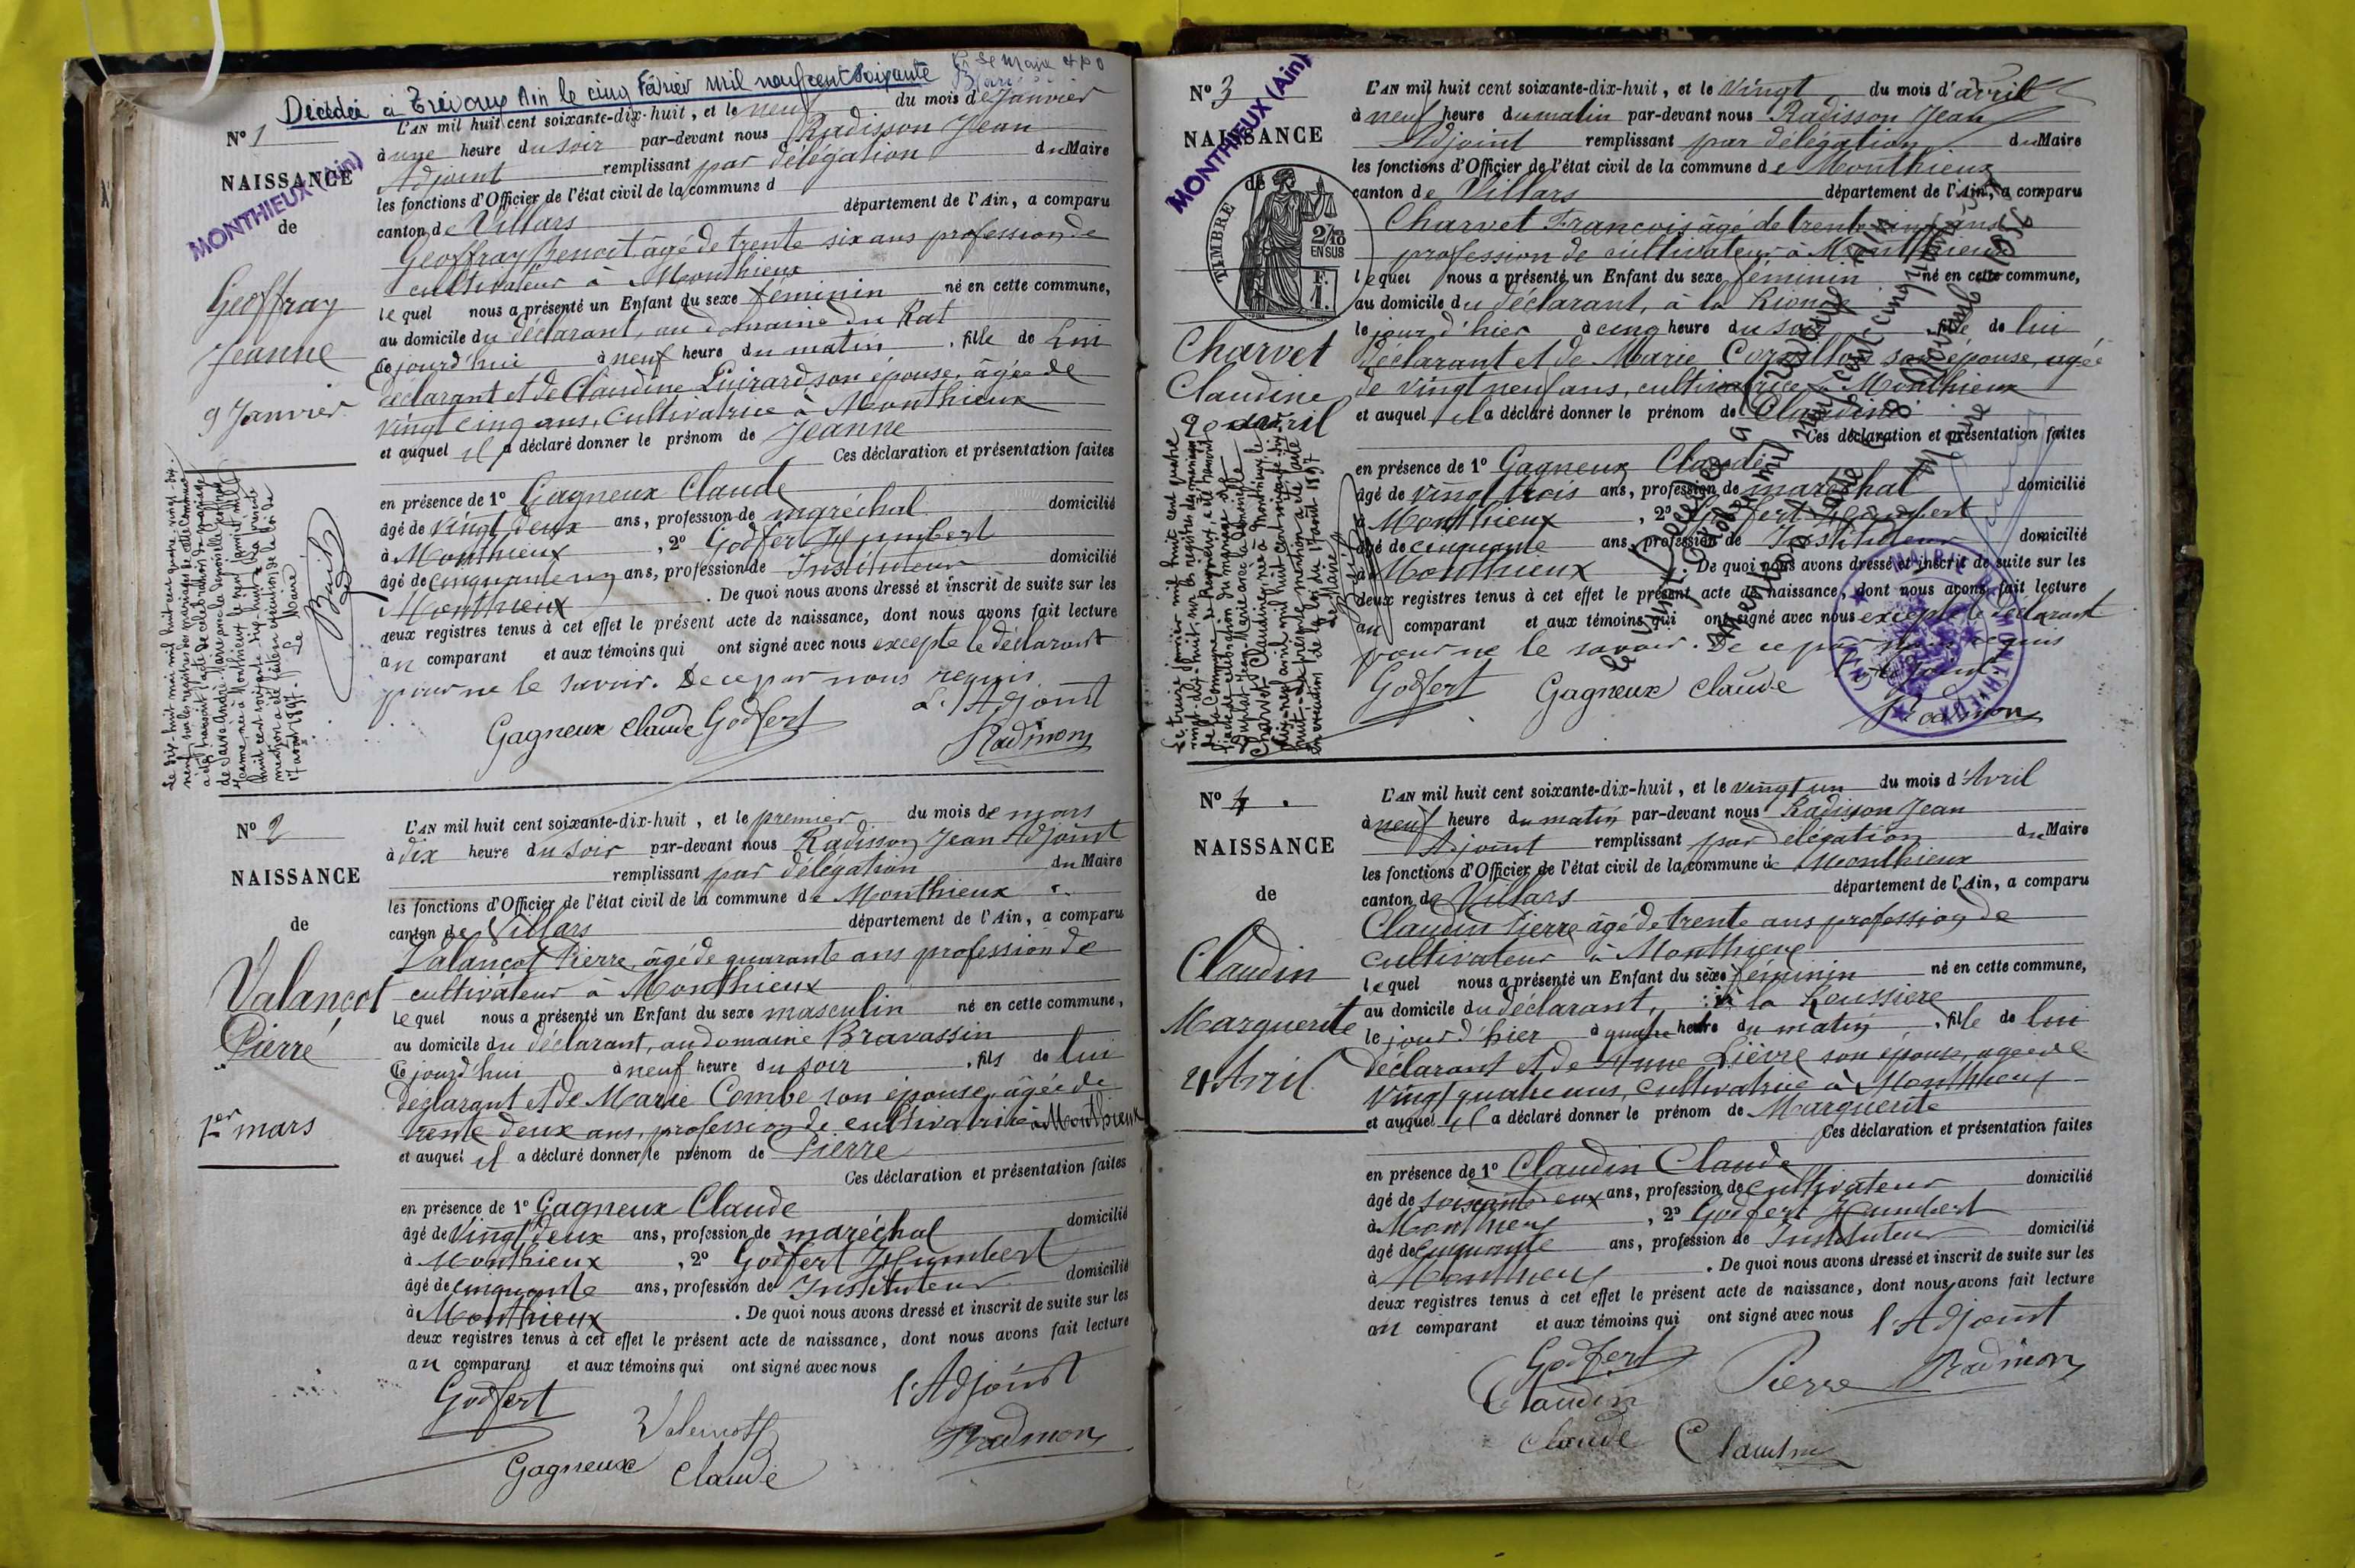 Décédée à Trévoux Ain le cinq Février mil neuf cent soixante
N° 1
NAISSANCE
de
MONTHIEUX (Ain)
Geoffray
Jeanne
9 Janvier
L'AN mil huit cent soixante-dix-huit, et le neuf du mois de Janvier
à une heure du soir par-devant nous Radisson Jean
Adjoint remplissant par délégation du Maire
les fonctions d'Officier de l'état civil de la commune d
canton de Villars département de l'Ain, a comparu
Geoffray Benoit âgé de trente six ans profession de
cultivateur à Monthieux
lequel nous a présenté un Enfant du sexe féminin né en cette commune,
au domicile du déclarant, au domaine du Rat
Ce jourd'hui à neuf heure du matin, fille de Lui
déclarant et de Claudine Guirard son épouse, âgée de
vingt cinq ans, Cultivatrice à Monthieux
et auquel il a déclaré donner le prénom de Jeanne
Ces déclaration et présentation faites
en présence de 1° Gagneux Claude
âgé de vingt deux ans, profession de maréchal domicilié
à Monthieux, 2° Godfert Humbert
âgé de cinquante ans, profession de Instituteur domicilié
Monthieux. De quoi nous avons dressé et inscrit de suite sur les
deux registres tenus à cet effet le présent acte de naissance, dont nous avons fait lecture
au comparant et aux témoins qui ont signé avec nous excepté le déclarant
pour ne le savoir. De ce par nous requis.
Gagneux Claude Godfert L'Adjoint
Radisson
17 août 1897. Le Maire
N° 2
NAISSANCE
de
Valançot
Pierre
1er mars
L'AN mil huit cent soixante-dix-huit, et le premier du mois de mars
à dix heure du soir par-devant nous Radisson Jean Adjoint
remplissant par délégation du Maire
les fonctions d'Officier de l'état civil de la commune de Monthieux
canton de Villars département de l'Ain, a comparu
Valançot Pierre, âgé de quarante ans profession de
cultivateur à Monthieux
lequel nous a présenté un Enfant du sexe masculin né en cette commune,
au domicile du déclarant, au domaine Bravassin
Ce jourd'hui à neuf heure du soir, fils de lui
déclarant et de Marie Combe son épouse, âgée de
trente deux ans, profession de cultivatrice à Monthieux
et auquel il a déclaré donner le prénom de Pierre
Ces déclaration et présentation faites
en présence de 1° Gagneux Claude
âgé de Vingt deux ans, profession de maréchal domicilié
à Monthieux, 2° Godfert Humbert
âgé de cinquante ans, profession de Instituteur domicilié
à Monthieux. De quoi nous avons dressé et inscrit de suite sur les
deux registres tenus à cet effet le présent acte de naissance, dont nous avons fait lecture
au comparant et aux témoins qui ont signé avec nous
Godfert l'Adjoint
Radisson
Gagneux Claude
N° 3
NAISSANCE
de
MONTHIEUX (Ain)
TIMBRE
2/10
EN SUS
F.
1.
Charvet
Claudine
20 avril
L'AN mil huit cent soixante-dix-huit, et le Vingt du mois d'avril
à neuf heure du matin par-devant nous Radisson Jean
Adjoint remplissant par délégation du Maire
les fonctions d'Officier de l'état civil de la commune de Monthieux
canton de Villars département de l'Ain, a comparu
Charvet François âgé de trente cinq ans
profession de cultivateur à Monthieux
lequel nous a présenté un Enfant du sexe féminin né en cette commune,
au domicile du déclarant, à la
le jour d'hier à cinq heure du soir fille de lui
déclarant et de Marie son épouse, âgée
de Vingt neuf ans, cultivatrice à Monthieux
et auquel il a déclaré donner le prénom de Claudine
Ces déclaration et présentation faites
en présence de 1° Gagneux Claude
âgé de Vingt trois ans, profession de maréchal domicilié
à Monthieux, 2° Godfert Humbert
âgé de cinquante ans, profession de Instituteur domicilié
à Monthieux. De quoi nous avons dressé et inscrit de suite sur les
deux registres tenus à cet effet le présent acte de naissance, dont nous avons fait lecture
au comparant et aux témoins qui ont signé avec nous excepté le déclarant
pour ne le savoir. De ce par nous requis
Godfert Gagneux Claude L'Adjoint
Radisson
N° 4
NAISSANCE
de
Claudin
Marguerite
21 Avril
L'AN mil huit cent soixante-dix-huit, et le vingt un du mois d'Avril
à neuf heure du matin par-devant nous Radisson Jean
Adjoint remplissant par délégation du Maire
les fonctions d'Officier de l'état civil de la commune de Monthieux
canton de Villars département de l'Ain, a comparu
Claudin Pierre âgé de trente ans profession de
cultivateur à Monthieux
lequel nous a présenté un Enfant du sexe féminin né en cette commune,
au domicile du déclarant, à la Roussière
le jour d'hier à quatre heure du matin, fille de lui
déclarant et de Anne Lièvre son épouse, agée de
Vingt quatre ans, Cultivatrice à Monthieux
et auquel il a déclaré donner le prénom de Marguerite
Ces déclaration et présentation faites
en présence de 1° Claudin Claude
âgé de soixante deux ans, profession de Cultivateur domicilié
à Monthieux, 2° Godfert Humbert
âgé de cinquante ans, profession de Instituteur domicilié
à Monthieux. De quoi nous avons dressé et inscrit de suite sur les
deux registres tenus à cet effet le présent acte de naissance, dont nous avons fait lecture
au comparant et aux témoins qui ont signé avec nous l'Adjoint
Godfert Pierre Radisson
Claudin
Claude Claudin